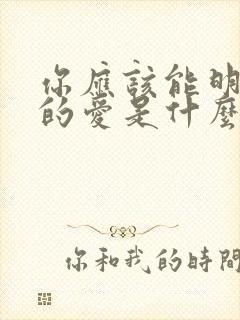 你應該能明
的愛是什麼
你和我的時間